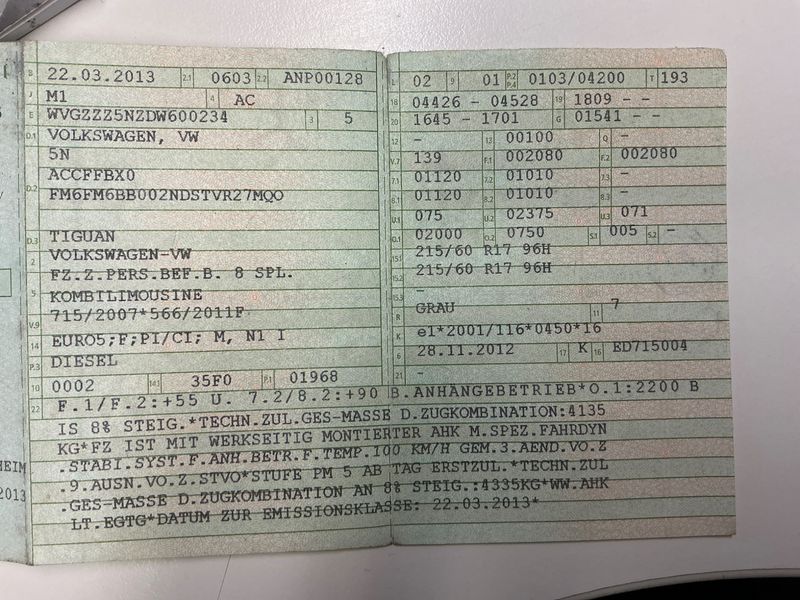 B 22.03.2013 2.1 0603 2.2 ANP00128
J M1 4 AC
E WVGZZZ5NZDW600234 3 5
D.1 VOLKSWAGEN, VW
5N
D.2 ACCFFBX0
FM6FM6BB002NDSTVR27MQO
D.3 TIGUAN
2 VOLKSWAGEN-VW
FZ.Z.PERS.BEF.B. 8 SPL.
5 KOMBILIMOUSINE
V.9 715/2007*566/2011F
14 EURO5;F;PI/CI; M, N1 I
P.3 DIESEL
10 0002 14.1 35F0 P.1 01968
L 02 9 01 P.2 P.4 0103/04200 T 193
18 04426 - 04528 19 1809 - -
20 1645 - 1701 G 01541 - -
12 - 13 00100 Q -
V.7 139 F.1 002080 F.2 002080
7.1 01120 7.2 01010 7.3 -
8.1 01120 8.2 01010 8.3 -
U.1 075 U.2 02375 U.3 071
O.1 02000 O.2 0750 S.1 005 S.2 -
15.1 215/60 R17 96H
15.2 215/60 R17 96H
15.3 -
R GRAU 11 7
K e1*2001/116*0450*16
6 28.11.2012 17 K 16 ED715004
21 -
22 F.1/F.2:+55 U. 7.2/8.2:+90 B.ANHÄNGEBETRIEB*O.1:2200 B
IS 8% STEIG.*TECHN.ZUL.GES-MASSE D.ZUGKOMBINATION:4135
KG*FZ IST MIT WERKSEITIG MONTIERTER AHK M.SPEZ.FAHRDYN
.STABI.SYST.F.ANH.BETR.F.TEMP.100 KM/H GEM.3.AEND.VO.Z
.9.AUSN.VO.Z.STVO*STUFE PM 5 AB TAG ERSTZUL.*TECHN.ZUL
.GES-MASSE D.ZUGKOMBINATION AN 8% STEIG.:4335KG*WW.AHK
LT.EGTG*DATUM ZUR EMISSIONSKLASSE: 22.03.2013*
HEIM
2013